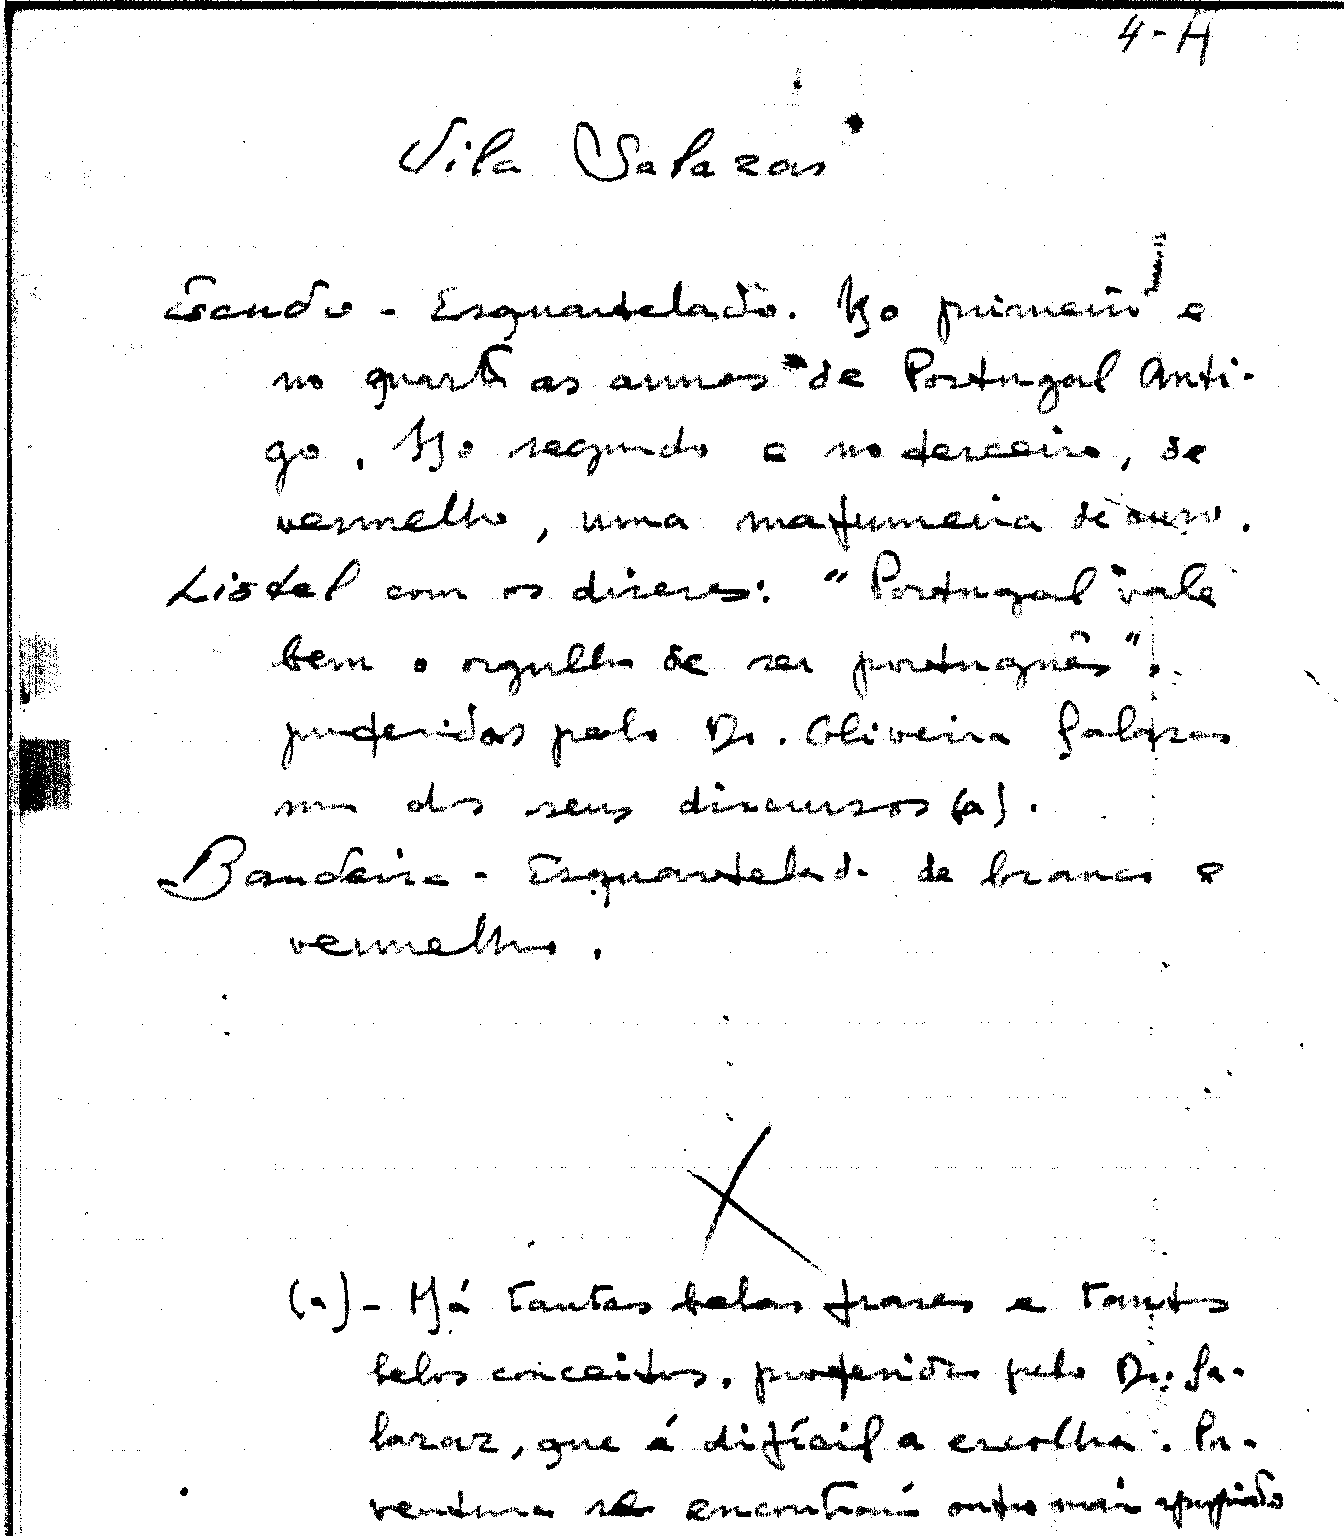 4-A
Vila Salazar
Escudo - Esquartelado. No primeiro e
no quarto as armas de Portugal Anti-
go. No segundo e no terceiro, de
vermelho, uma mafumeira de ouro.
Listel com os dizeres: "Portugal vale
bem o orgulho de ser português".
proferidos pelo Dr. Oliveira Salazar
num dos seus discursos (a).
Bandeira - Esquartelada de branco e
vermelho.
(a) - Há tantas belas frases e tantos
belos conceitos, proferidos pelo Dr. Sa-
lazar, que é difícil a escolha. Por-
ventura se encontrará outro mais apropriado